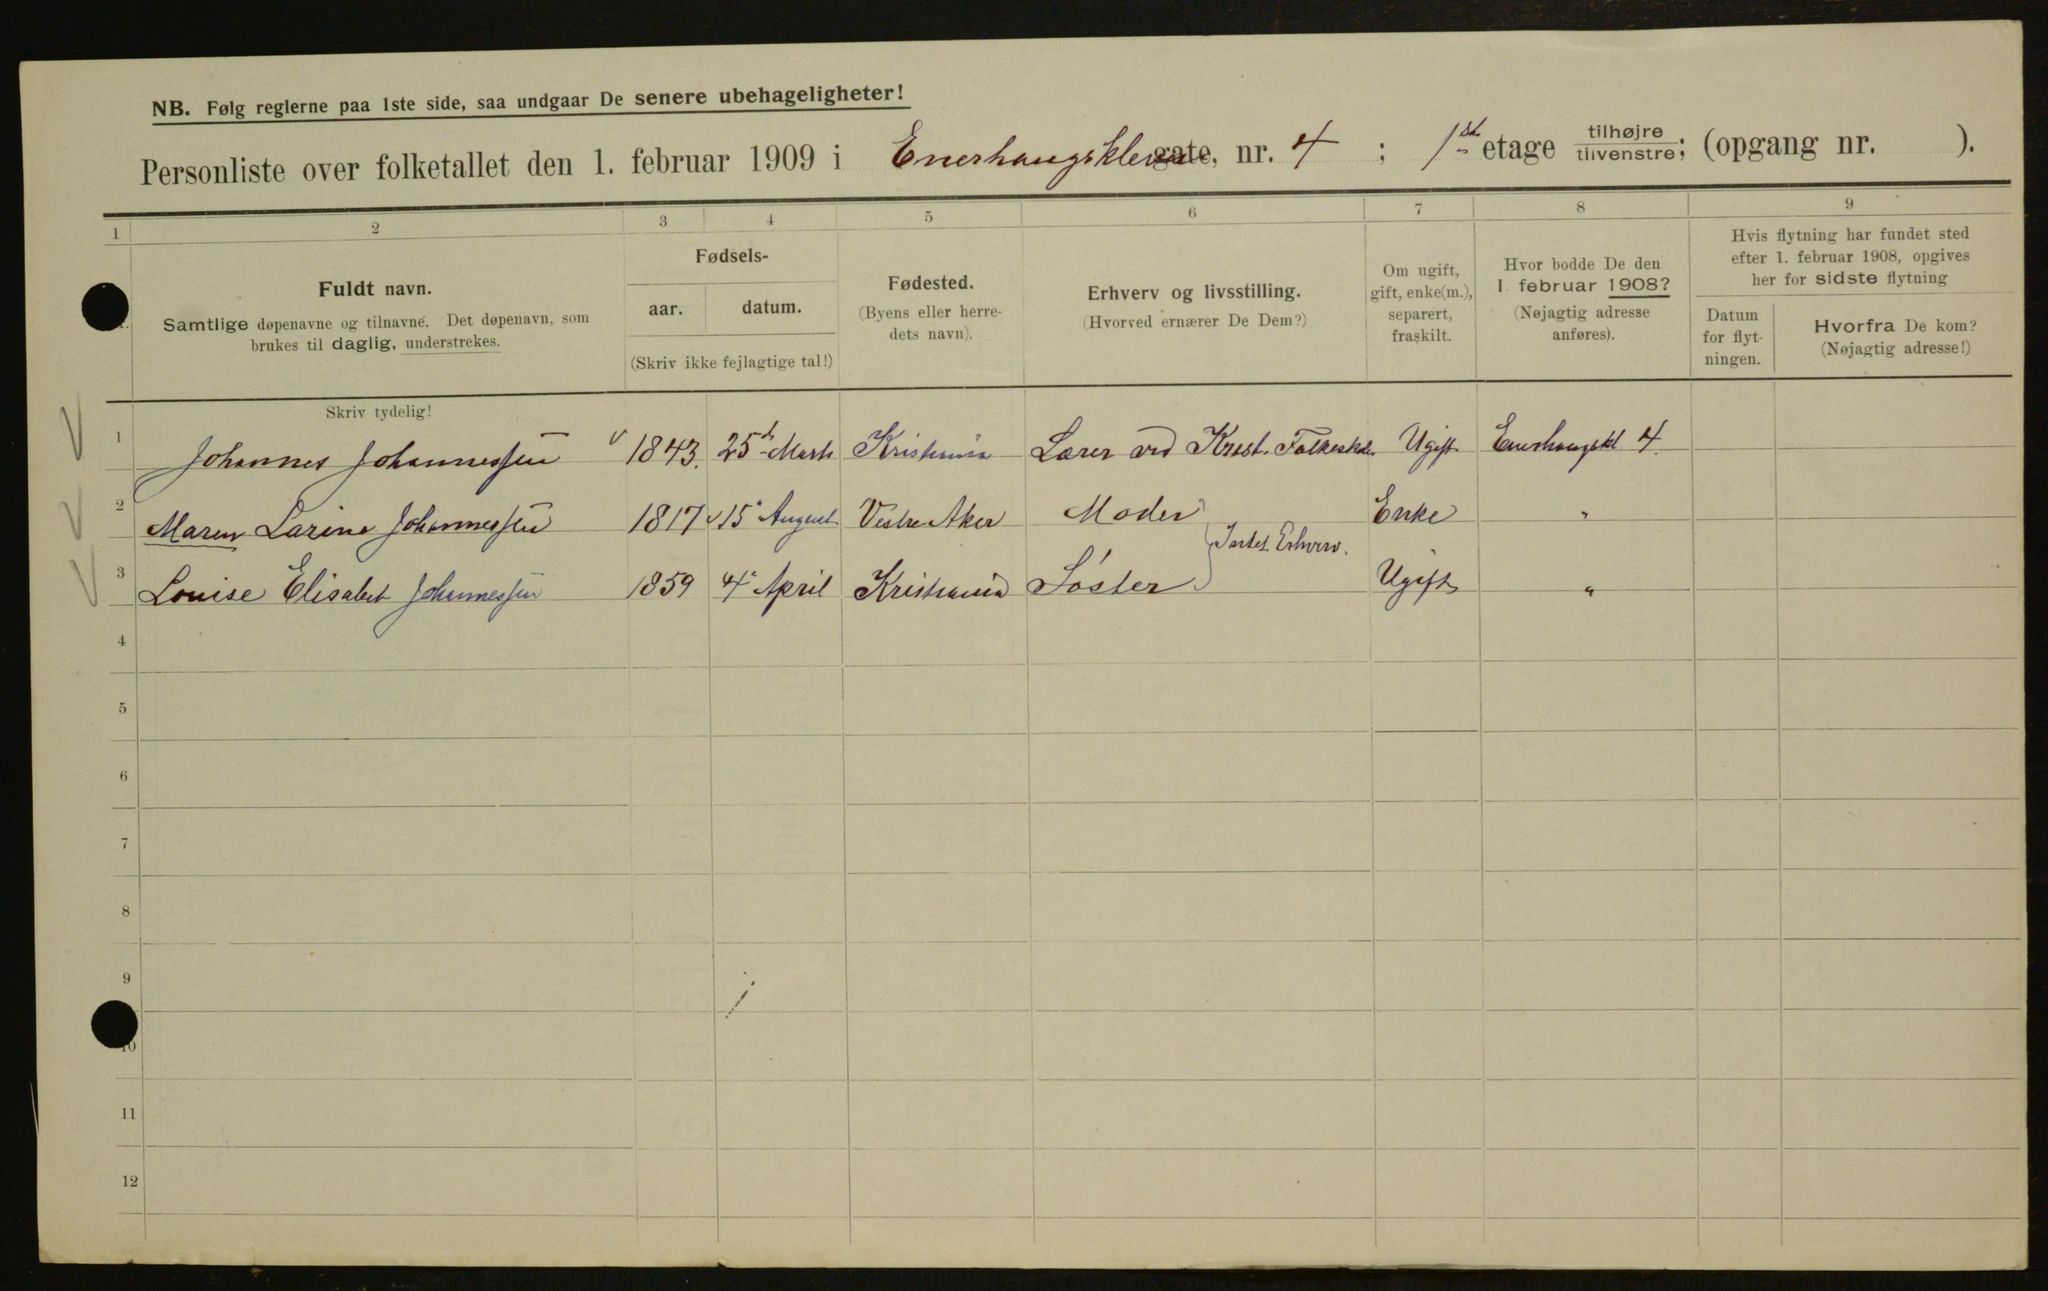 NB. Følg reglerne paa 1ste side, saa undgaar De senere ubehageligheter!
Personliste over folketallet den 1. februar 1909 i Enerhaugskleven gate, nr. 4 ; 1ste etage tilhøjre / tilvenstre; (opgang nr. ).
1 2 3 4 5 6 7 8 9
Fuldt navn.
Samtlige døpenavne og tilnavne. Det døpenavn, som
brukes til daglig, understrekes.
Skriv tydelig!
Fødsels-
aar. datum.
(Skriv ikke fejlagtige tal!)
Fødested.
(Byens eller herre-
dets navn).
Erhverv og livsstilling.
(Hvorved ernærer De Dem?)
Om ugift,
gift, enke(m.),
separert,
fraskilt.
Hvor bodde De den
1. februar 1908?
(Nøjagtig adresse
anføres).
Hvis flytning har fundet sted
efter 1. februar 1908, opgives
her for sidste flytning
Datum
for flyt-
ningen.
Hvorfra De kom?
(Nøjagtig adresse!)
1 Johannes Johannessen 1843. 25de Marts Kristiania Lærer ved Krist. Folkeskole Ugift Enerhaugskl 4.
2 Maren Larine Johannessen 1817 15' August Vestre Aker Moder Enke "
Intet Erhverv.
3 Louise Elisabet Johannessen 1859 4' April Kristiania Søster Ugift "
4
5
6
7
8
9
10
11
12